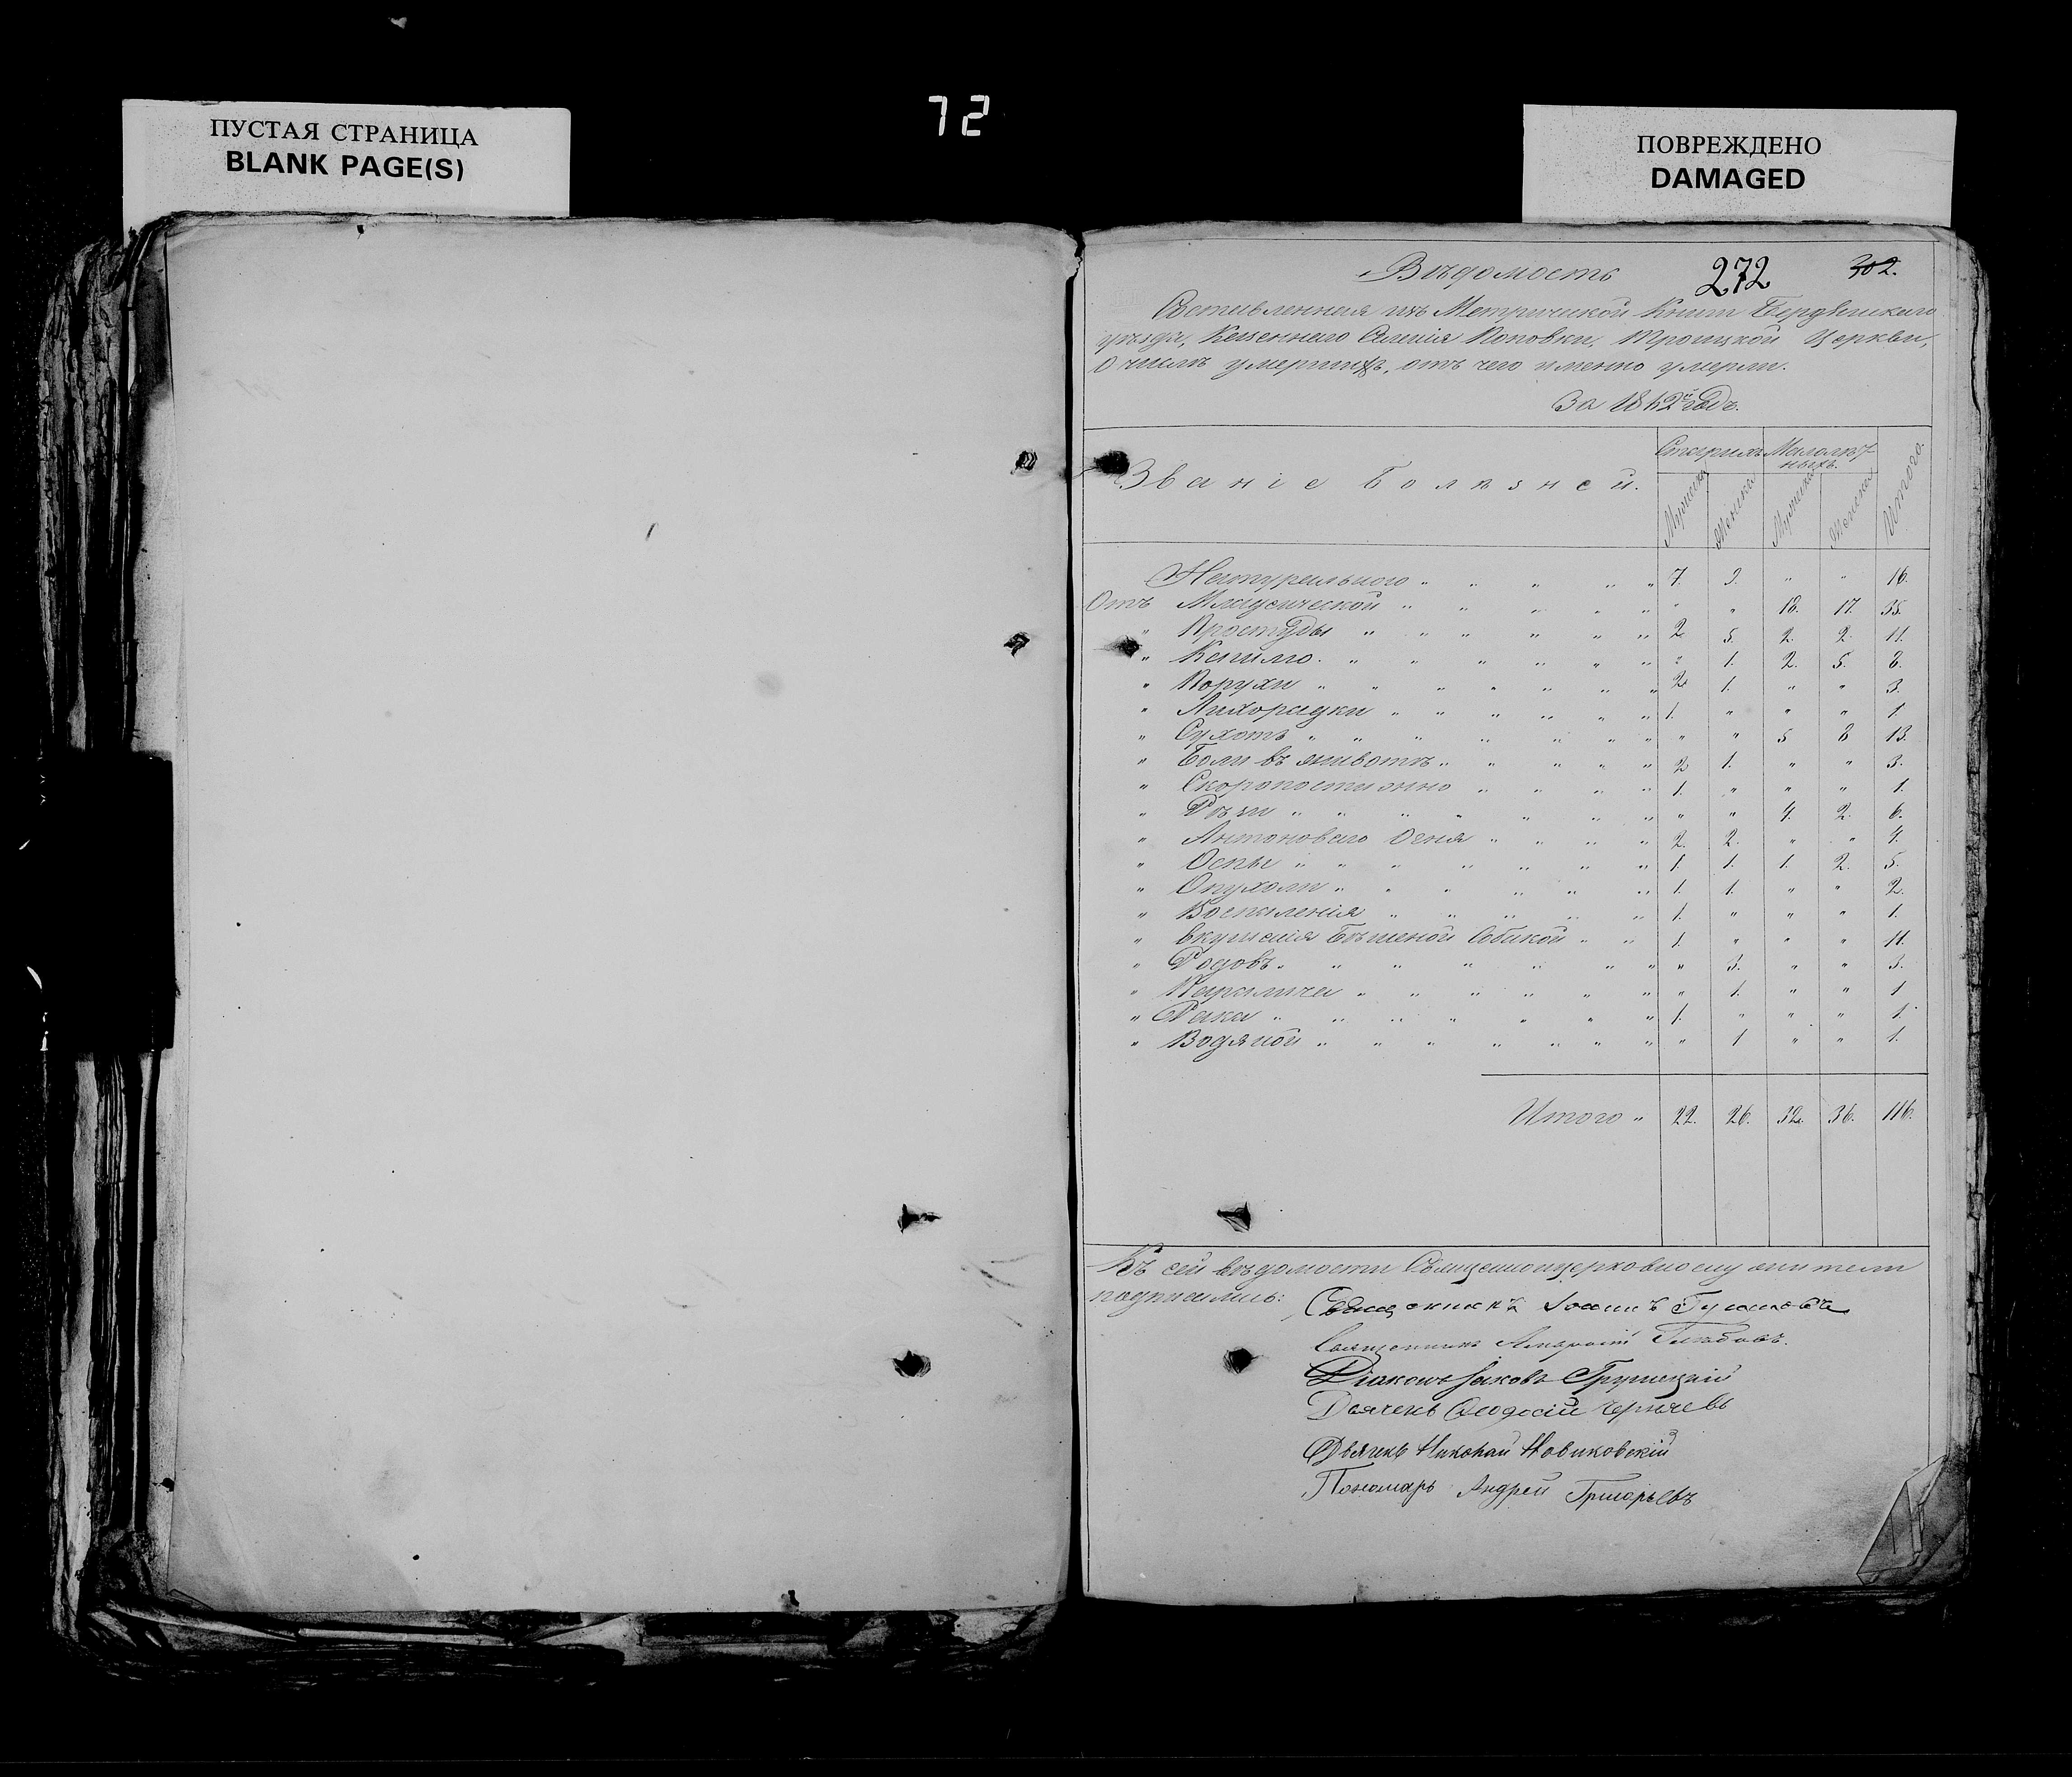 72
ПУСТАЯ СТРАНИЦА
BLANK PAGE(S)
ПОВРЕЖДЕНО
DAMAGED
Вѣдомость 272 302.
Составленная изъ Метрической Книги Бердянскаго
уѣзда, Казеннаго Селенія Поповки, Троицкой Церкви,
О числѣ умершихъ, отъ чего именно умерли.
За 1842й годъ.
Званіе Болѣзней. Старыхъ Малолѣт- Итого.
ныхъ.
Мужеска Женска Мужеска Женска
Натуральнаго " " " " " 7. 9. " " 16.
Отъ Младенческой " " " " " " " 18. 17. 35.
" Простуды " " " " " " 2 5. 2. 2. 11.
" Кашлю. " " " " " " " 1. 2. 5. 8.
" Порухи " " " " " " " 2 1. " " 3.
" Лихорадки " " " " " " 1. " " " 1.
" Сухотъ " " " " " " " " " 5 8 13.
" Боли въ животѣ " " " " " 2 1. " " 3.
" Скоропостижно " " " " 1. " " " 1.
" Рѣзи " " " " " " " " " 4. 2. 6.
" Антоноваго Огня " " " " 2. 2. " " 4.
" Оспы " " " " " " " 1. 1. 1. 2. 5.
" Опухоли " " " " " " 1. 1. " " 2.
" Воспаленія " " " " " 1. " " " 1.
" вкушенія Бѣшеной Собакой " " 1. " " " 11.
" Родовъ " " " " " " " " 3. " " 3.
" Паралича " " " " " " " " 1. " " 1
" Рака " " " " " " " 1. " " " 1.
" Водяной " " " " " " " " 1 " " 1.
Итого " 22. 26. 32. 36. 116.
Къ сей вѣдомости Священноцерковнослужители
подписались:
Священникъ Іоаннъ
Священникъ
Діаконъ Іаковъ Грушецкій
Дьячекъ Ѳеодосій Чернаевъ
Дьячекъ Николай Новиковскій
Пономарь Андрей Григорьевъ